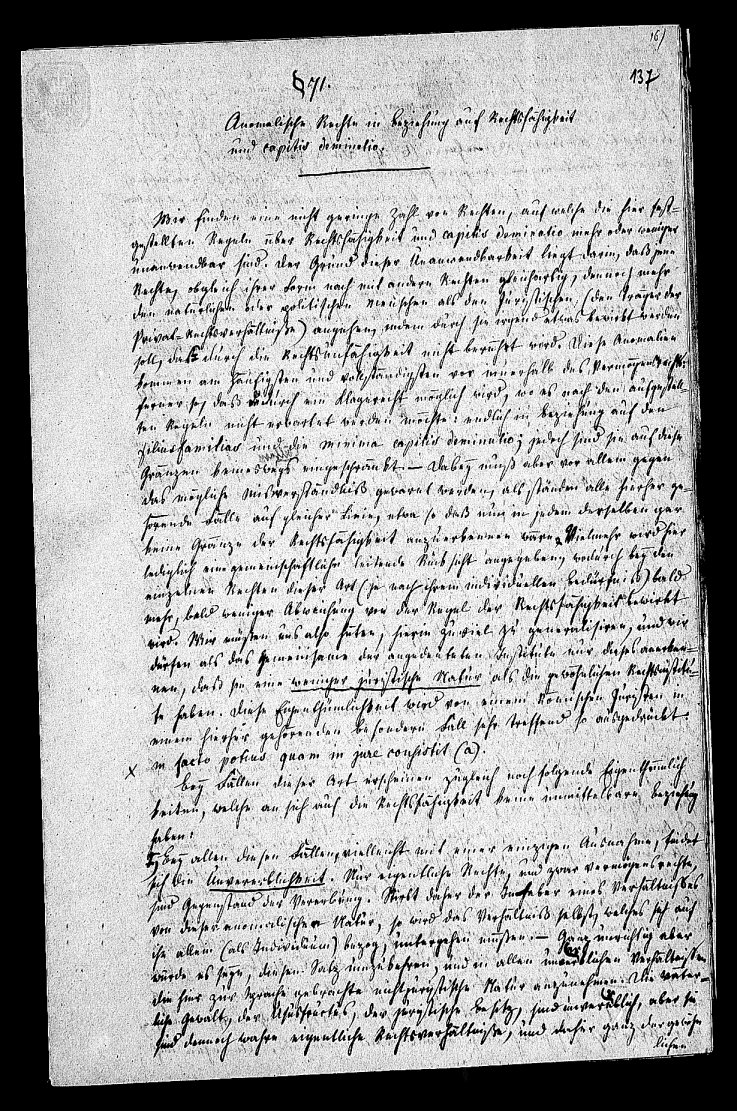 16)
137
§ 71.
Anomalische Rechte in Beziehung auf Rechtsfähigkeit
und capitis deminutio.
Wir finden eine nicht geringe Zahl von Rechten, auf welche die hier fest-
gestellten Regeln über Rechtsfähigkeit und capitis deminutio mehr oder weniger
unanwendbar sind. Der Grund dieser Unanwendbarkeit liegt darin, daß jene
Rechte, obgleich ihrer Form nach mit andern Rechten gleichartig, dennoch mehr
den natürlichen oder politischen Menschen als den juristischen, (den Träger der
Privat-Rechtsverhältnisse) angehen, indem durch sie irgend etwas bewirkt werden
soll, das durch die Rechtsunfähigkeit nicht berührt wird. Diese Anomalien
kommen am häufigsten und vollständigsten vor innerhalb des Vermögensrechts:
ferner so, daß dadurch ein Klagerecht möglich wird, wo es nach den aufgestell-
ten Regeln nicht erwartet werden möchte: endlich in Beziehung auf den
filiusfamilias und die minima capitis deminutio; jedoch sind sie auf diese
Gränzen keineswegs eingeschränkt. – Dabey muß aber vor allem gegen
das mögliche Misverständniß gewarnt werden, als ständen alle hierher ge-
hörende Fälle auf gleicher Linie, etwa so daß nun in jedem derselben gar
keine Gränze der Rechtsfähigkeit anzuerkennen wäre. Vielmehr wird hier
lediglich eine gemeinschaftliche leitende Rücksicht angegeben, wodurch bey den
einzelnen Rechten dieser Art (je nach ihrem individuellen Bedürfniß) bald
mehr, bald weniger Abweichung von der Regel der Rechtsfähigkeit bewirkt
wird. Wir müssen uns also hüten, hierin zuviel zu generalisiren, und wir
dürfen als das Gemeinsame der angedeuteten Institute nur dieses anerken-
nen, daß sie eine weniger juristische Natur als die gewöhnlichen Rechtsinstitu-
te haben. Diese Eigenthümlichkeit wird von einem Römischen Juristen in
einem hierher gehörenden besondern Fall sehr treffend so ausgedrückt:
in facto potius quam in jure consistit (a).
x Bey Fällen dieser Art erscheinen zugleich noch folgende Eigenthümlich-
keiten, welche an sich auf die Rechtsfähigkeit keine unmittelbare Beziehung
haben:
Bey allen diesen Fällen, vielleicht mit einer einzigen Ausnahme, findet
sich die Unvererblichkeit. Nur eigentliche Rechte, und zwar Vermögensrechte,
sind Gegenstand der Vererbung. Stirbt daher der Inhaber eines Verhältnisses
von dieser anomalischen Natur, so wird das Verhältniß selbst, welches sich auf
ihn allein (als Individuum) bezog, untergehen müssen. – Ganz unrichtig aber
würde es seyn, diesen Satz umzukehren, und in allen unvererblichen Verhältnissen
die hier zur Sprache gebrachte nichtjuristische Natur anzunehmen. Die väter-
liche Gewalt, der Ususfructus, der juristische Besitz, sind unvererblich, aber sie
sind dennoch wahre eigentliche Rechtsverhältnisse, und daher ganz der gewöhn-
lichen